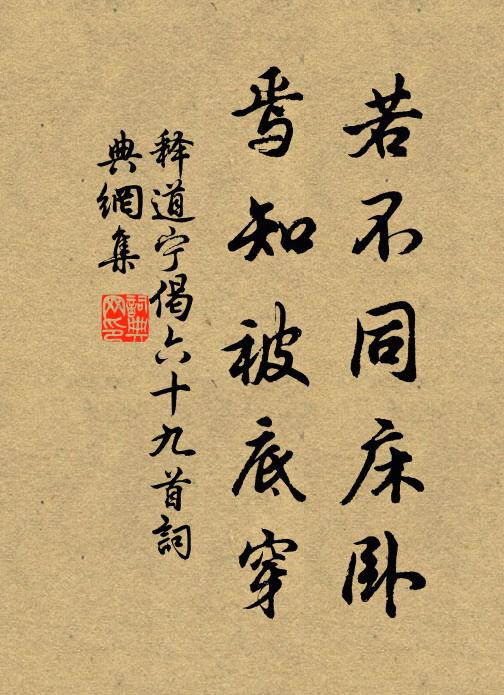 若不同床卧
焉知被底穿
释道宁偈六十九首詞
典網集
詞典
网印